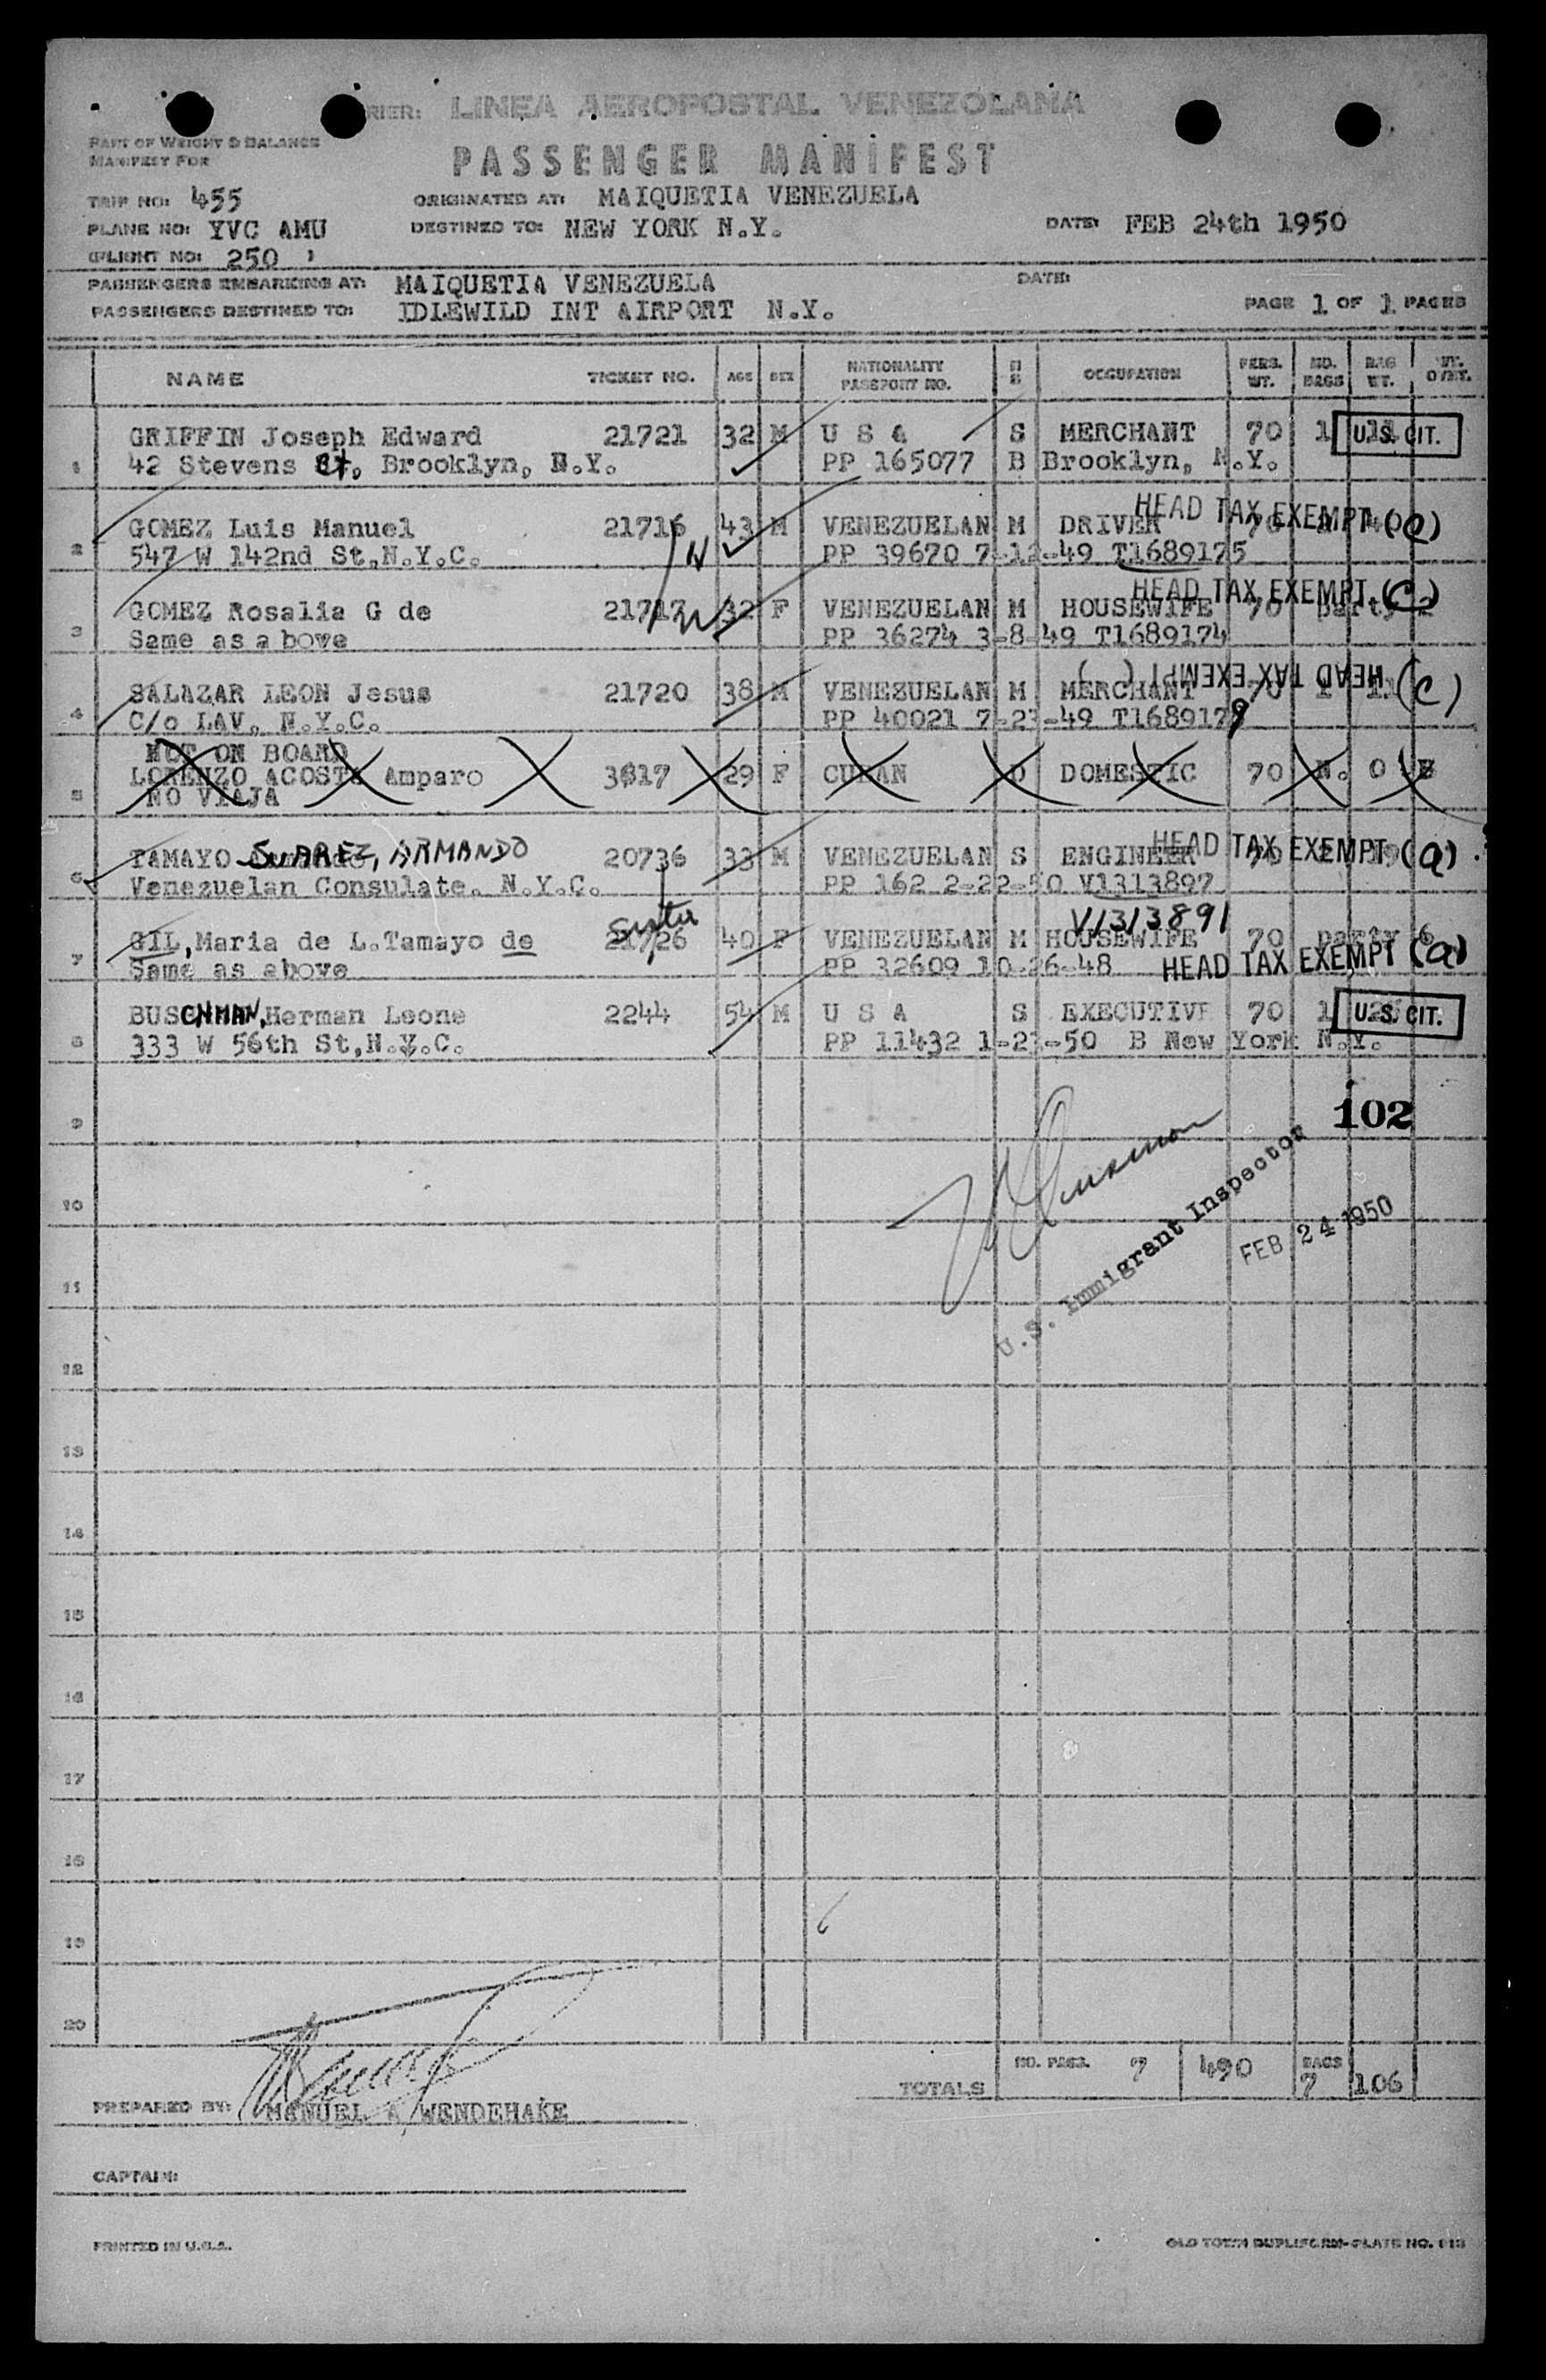 RIER: LINEA AEROPOSTAL VENEZOLANA
PART OF WEIGHT & BALANCE
MANIFEST FOR
PASSENGER MANIFEST
TRIP NO: 455 ORIGINATED AT: MAIQUETIA VENEZUELA
PLANE NO: YVC AMU DESTINED TO: NEW YORK N.Y. DATE: FEB 24th 1950
(FLIGHT NO: 250 )
PASSENGERS EMBARKING AT: MAIQUETIA VENEZUELA DATE:
PASSENGERS DESTINED TO: IDLEWILD INT AIRPORT N.Y. PAGE 1 OF 1 PAGES
NAME TICKET NO. AGE SEX NATIONALITY PASSPORT NO. OCCUPATION PERS. WT. NO. BAGS BAG WT.
GRIFFIN Joseph Edward 21721 32 M U S A S MERCHANT 70 1 U.S. CIT.
1 42 Stevens St, Brooklyn, N.Y. PP 165077 B Brooklyn, N.Y.
GOMEZ Luis Manuel 21716 43 M VENEZUELAN M DRIVER 70 HEAD TAX EXEMPT (c)
2 547 W 142nd St.N.Y.C. PP 39670 7-12-49 T1689175
GOMEZ Rosalia G de 21717 32 F VENEZUELAN M HOUSEWIFE 70 party 2 HEAD TAX EXEMPT (c)
3 Same as above PP 36274 3-8-49 T1689174
SALAZAR LEON Jesus 21720 38 M VENEZUELAN M MERCHANT 70 HEAD TAX EXEMPT ( ) (c)
4 C/o LAV. N.Y.C. PP 40021 7-23-49 T1689179
NOT ON BOARD
5 LORENZO ACOSTA Amparo 3817 29 F CUBAN D DOMESTIC 70 N. O B
NO VIAJA
TAMAYO SUAREZ, ARMANDO 20736 33 M VENEZUELAN S ENGINEER 70 HEAD TAX EXEMPT (a)
6 Venezuelan Consulate. N.Y.C. PP 162 2-22-50 V1313897
Sister V1313891
GIL, Maria de L.Tamayo de 21726 40 F VENEZUELAN M HOUSEWIFE 70 party 6
7 Same as above PP 32609 10-26-48 HEAD TAX EXEMPT (a)
BUSCHMAN, Herman Leone 2244 54 M U S A S EXECUTIVE 70 1 U.S. CIT.
8 333 W 56th St,N.Y.C. PP 11432 1-23-50 B New York N.Y.
102
9
10
U.S. Immigrant Inspector
FEB 24 1950
11
12
13
14
15
16
17
18
19
20
TOTALS NO. PASS. 7 490 BAGS 7 106
PREPARED BY: MANUEL A WENDEHAKE
CAPTAIN:
PRINTED IN U.S.A. OLD TOWN DUPLIFORM-PLATE NO.